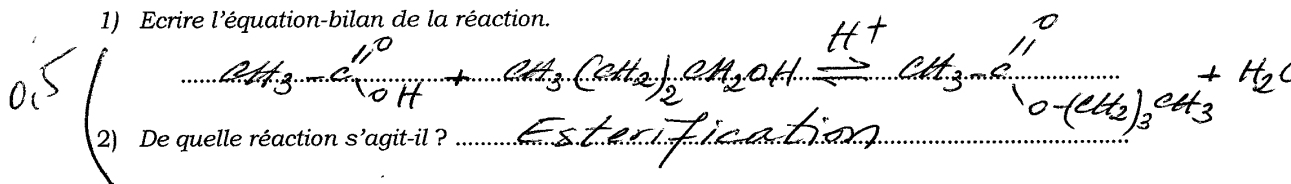 1) Ecrire l'équation-bilan de la réaction.
0,5 CH3-C(=O)OH + CH3(CH2)2CH2OH ⇌ (H+) CH3-C(=O)O-(CH2)3CH3 + H2O
2) De quelle réaction s'agit-il ? Esterification